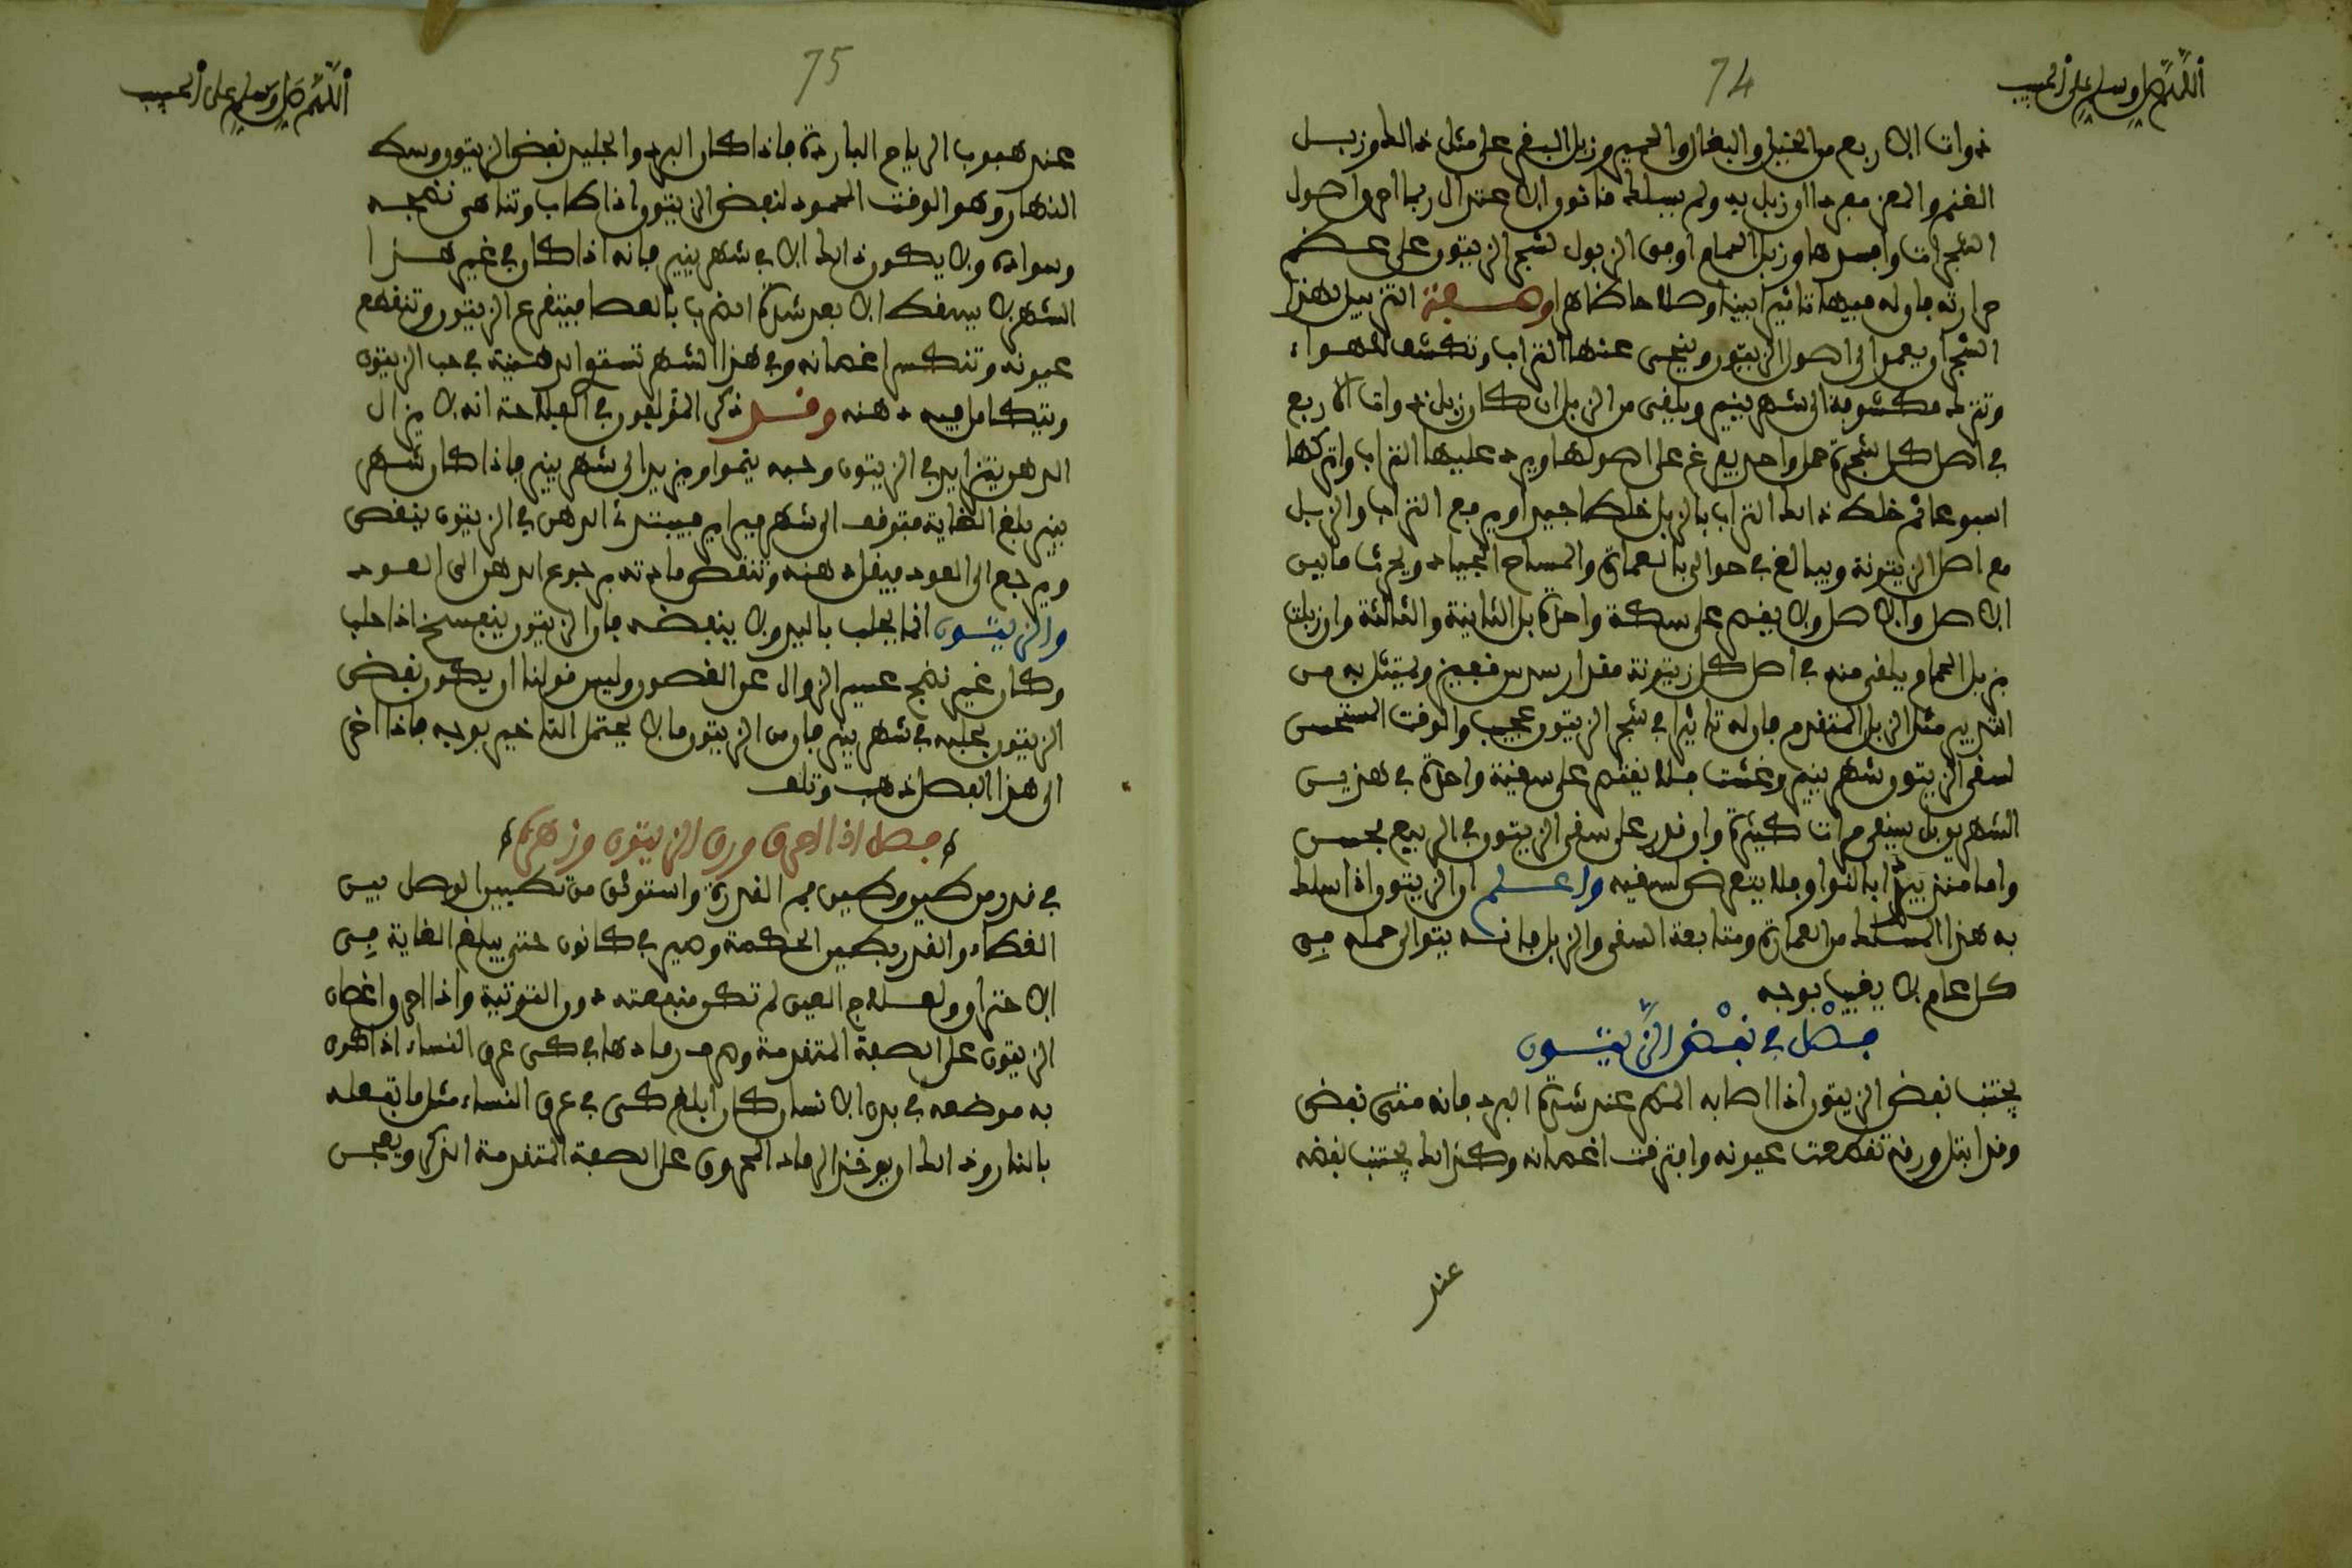 اللهم صل وسلم على الحبيب
74
ذوات الاربع من الخيل والبغال والحمير وزبل البقر على مثل ذالك وزبل
الغنم والمعز مفردا ان زبل به ولم يسلك قانون الاعتدال ربما احرق اصول
الشجرات وافسدها وزبل الحمام اوفق الزبول لشجر الزيتون على عظم
حرارته فان له فيها تاثيرا بينا وصلاحا ظاهرا وصفة التزبيل لهذا
الشجر ان يعمد الى اصول الزيتون وينحى عنها التراب وتكشف للهواء
وتترك مكشوفة الى شهر ينير ويلقى من الزبل ان كان زبل ذوات الاربع
في اصل كل شجرة حمل واحد يفرغ على اصولها ويرد عليها التراب واتركها
اسبوعا ثم خلط ذالك التراب بالزبل خلطا جيدا ويرجع التراب والزبل
مع اصل الزيتونة ويبالغ في حوالي بالعمارة والمساح الجياد ويحرث ما بين
الاصل والاصل ولا يقتصر على سكة واحدة بل الثانية والثالثة وان زبلت
بزبل الحمام يلقى منه في اصل كل زيتونة مقدار سدس قفيز ويمتثل به من
التدبير مثل الزبل المتقدم فان له تاثيرا في شجر الزيتون عجيب والوقت المستحسن
لسقى الزيتون شهر ينير وغشت فلا يقتصر على سقية واحدة في هذين
الشهرين بل يسقى مرات كثيرة وان قدر على سقى الزيتون في الربيع فحسن
واما منذ يبدا بالنوار فلا يتعرض لسقيه واعلم ان الزيتون اذا سلك
به هذا المسلك من العمارة ومتابعة السقى والزبل فانه يتوالى حمله في
كل عام لا يغيب بوجه
فصل في نفض الزيتون
يجتنب نفض الزيتون اذا اصابه المطر عند شدة البرد فانه متى نفض
وقد ابتل ورقه تقطعت عيونه وافترقت اغصانه وكذالك يجتنب نفضه
عند
اللهم صل وسلم على الحبيب
75
عند هبوب الرياح الباردة فاذا كان البرد والجليد نفض الزيتون وسط
النهار وهو الوقت المحمود لنفض الزيتون اذا طاب وتناهى نضجه
وسواده ولا يكون ذالك الا في شهر ينير فانه اذا كان في غير هذا
الشهر لا يسقط الا بعد شدة الضرب بالعصا فيتفرع الزيتون وتنقطع
عيونه وتنكسر اغصانه وفي هذا الشهر تستوى الدهنية في حب الزيتون
ويتكامل فيه دهنه وقد ذكر المؤلفون في الفلاحة انه لا يزال
الدهن يتزايد في الزيتون وحبه ينموا ويزيد الى شهر ينير فاذا كان شهر
ينير بلغ النهاية فتوقف الى شهر فبراير فيبتدئ الدهن في الزيتون بنقص
ويرجع الى العود فيقل دهنه وتنقص مادته برجوع الدهن الى العود
والزيتون انما يحلب باليد ولا ينبغضه فان الزيتون ينفسخ اذا حلب
وكان غير نضج عسير الزوال عن الغصون وليس قولنا ان يكون نفض
الزيتون بجلبه في شهر ينير فان من الزيتون ما لا يحتمل التاخير بوجه فاذا اخر
الى هذا الفصل ذهب وتلف
فصل اذا احرق ورق الزيتون وزهره
في قدر من طين وطين فم القدرة واستوثق من تطيين الوصل بين
الغطاء والقدر بطين الحكمة وصير في كانون حتى يبلغ الغاية في
الاحتراق ولعلاج العين لم تكن منفعته دون التوتية واذا احرق اغصان
الزيتون على الصفة المتقدمة وصر رمادها في كى عرق النساء اذا كوى
به موضعه في بدن الانسان كان ابلغ كى في عرق النساء مثل ما تفعله
بالنار وذالك ان يوخذ الرماد المحروق على الصفة المتقدمة الذكر ويعجن